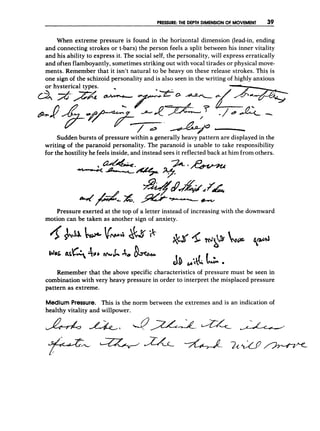 PRESSURE: THE DEPTH DIMENSION OF MOVEMENT 39
When extreme pressure is found in the horizontal dimension (lead-in, ending
and connecting strokes or t-bars) the person feels a split between his inner vitality
and his ability to express it. The social self, the personality, will express erratically
and often flamboyantly, sometimes striking out with vocal tirades or physical move-
ments. Remember that it isn't natural to be heavy on these release strokes. This is
one sign of the schizoid personality and is also seen in the writing of highly anxious
or hysterical types.
Or to take arms against a sea of troubles
and by opposing end them? To die —
To sleep —
Sudden bursts of pressure within a generally heavy pattern are displayed in the
writing of the paranoid personality. The paranoid is unable to take responsibility
for the hostility he feels inside, and instead sees it reflected back at him from others.
Pressure exerted at the top of a letter instead of increasing with the downward
motion can be taken as another sign of anxiety.
I should have known that it
was asking too much to
that I might have
do with him.
Remember that the above specific characteristics of pressure must be seen in
combination with very heavy pressure in order to interpret the misplaced pressure
pattern as extreme.
Medium Pressure. This is the norm between the extremes and is an indication of
healthy vitality and willpower.
looks like. I think the idea
faster than the hand will move